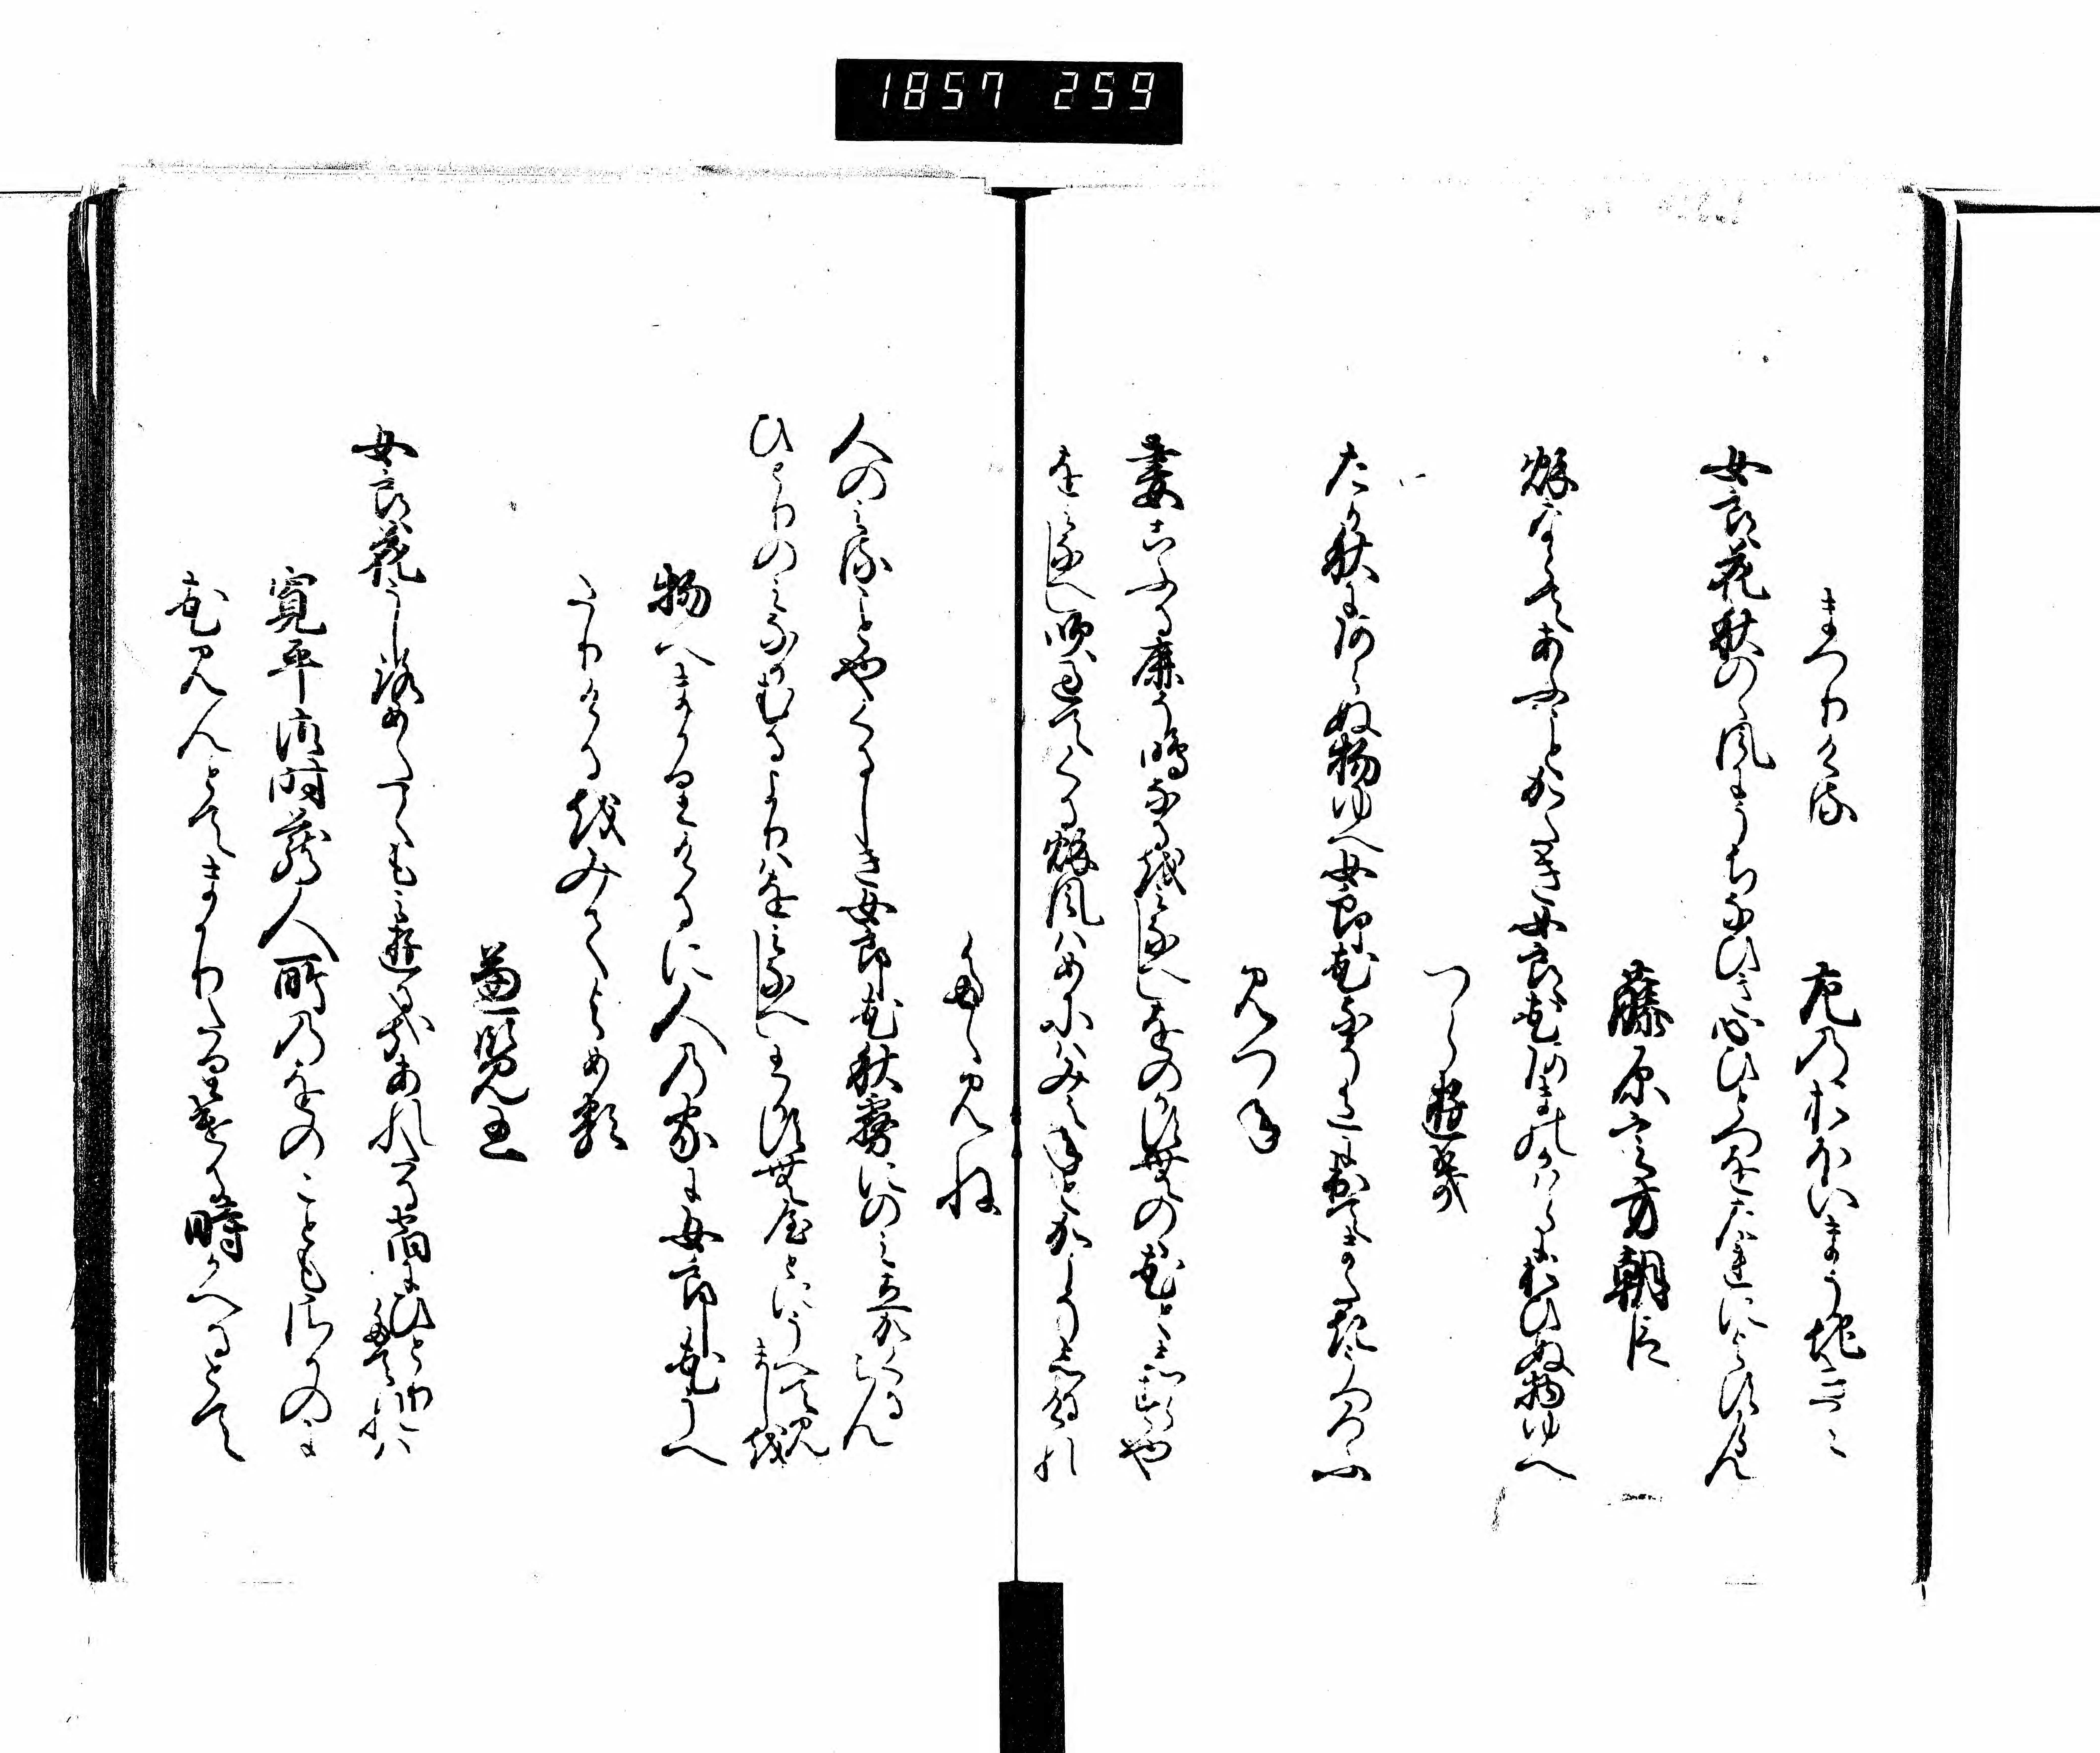 1857 259
まつりける 左のおほいまうち君
女良花秋の風にうちなひき心ひとつをたれによすらん
藤原定方朝臣
秋ならてあふことかたき女良花あまのかはらにおひぬ物ゆへ
つらゆき
たか秋にあらぬ物ゆへ女郎花なそ色に出てまたきうつろふ
みつね
妻こふる鹿そ鳴なる女郎花をのかすむ野の花としらすや
をみなへし吹過てくる秋風はめにはみえねとかこそしるけれ
たゝみね
人のみることやくるしき女郎花秋霧にのみ立かくるらん
ひとりのみなかむるよりはをみなへし我すむ屋とにうへて見ましを
物へまかりけるに人の家に女郎花うへ
たりけるをみてよめる
兼覧王
女良花うしろめたくもみゆるかなあれたる宿にひとりたてれは
寛平御時蔵人所のをのこともさかのに
花見んとてまかりたりける時かへるとて